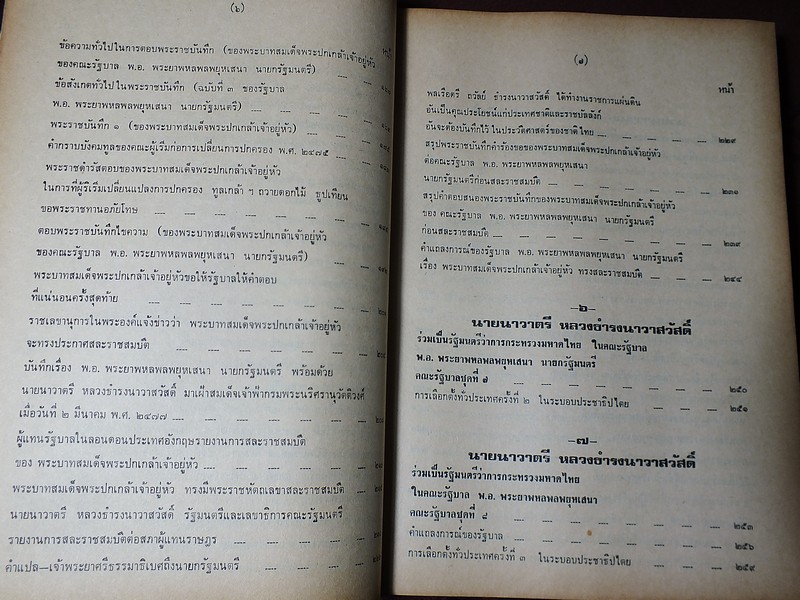 (๖)
ข้อความทั่วไปในการตอบพระราชบันทึก (ของพระบาทสมเด็จพระปกเกล้าเจ้าอยู่หัว
ของคณะรัฐบาล พ.อ. พระยาพหลพลพยุหเสนา นายกรัฐมนตรี)
ข้อสังเกตทั่วไปในพระราชบันทึก (ฉบับที่ ๓ ของรัฐบาล
พ.อ. พระยาพหลพลพยุหเสนา นายกรัฐมนตรี)
พระราชบันทึก ๑ (ของพระบาทสมเด็จพระปกเกล้าเจ้าอยู่หัว)
คำกราบบังคมทูลของคณะผู้เริ่มก่อการเปลี่ยนการปกครอง พ.ศ. ๒๔๗๕
พระราชดำรัสตอบของพระบาทสมเด็จพระปกเกล้าเจ้าอยู่หัว
ในการที่ผู้ริเริ่มเปลี่ยนแปลงการปกครอง ทูลเกล้า ฯ ถวายดอกไม้ ธูปเทียน
ขอพระราชทานอภัยโทษ
ตอบพระราชบันทึกไขความ (ของพระบาทสมเด็จพระปกเกล้าเจ้าอยู่หัว
ของคณะรัฐบาล พ.อ. พระยาพหลพลพยุหเสนา นายกรัฐมนตรี)
พระบาทสมเด็จพระปกเกล้าเจ้าอยู่หัวขอให้รัฐบาลให้คำตอบ
ที่แน่นอนครั้งสุดท้าย
ราชเลขานุการในพระองค์แจ้งข่าวว่า พระบาทสมเด็จพระปกเกล้าเจ้าอยู่หัว
จะทรงประกาศสละราชสมบัติ
บันทึกเรื่อง พ.อ. พระยาพหลพลพยุหเสนา นายกรัฐมนตรี พร้อมด้วย
นายนาวาตรี หลวงธำรงนาวาสวัสดิ์ มาเฝ้าสมเด็จเจ้าฟ้ากรมพระนริศรานุวัดติวงศ์
เมื่อวันที่ ๒ มีนาคม พ.ศ. ๒๔๗๗
ผู้แทนรัฐบาลในลอนดอนประเทศอังกฤษรายงานการสละราชสมบัติ
ของ พระบาทสมเด็จพระปกเกล้าเจ้าอยู่หัว
พระบาทสมเด็จพระปกเกล้าเจ้าอยู่หัว ทรงมีพระราชหัตถเลขาสละราชสมบัติ
นายนาวาตรี หลวงธำรงนาวาสวัสดิ์ รัฐมนตรีและเลขาธิการคณะรัฐมนตรี
รายงานการสละราชสมบัติต่อสภาผู้แทนราษฎร
คำแปล—เจ้าพระยาศรีธรรมาธิเบศถึงนายกรัฐมนตรี
(๗)
หน้า
พลเรือตรี ถวัลย์ ธำรงนาวาสวัสดิ์ ได้ทำงานราชการแผ่นดิน
อันเป็นคุณประโยชน์แก่ประเทศชาติและราชบัลลังก์
อันจะต้องบันทึกไว้ ในประวัติศาสตร์ของชาติไทย ๒๒๙
สรุปพระราชบันทึกคำร้องขอของพระบาทสมเด็จพระปกเกล้าเจ้าอยู่หัว
ต่อคณะรัฐบาล พ.อ. พระยาพหลพลพยุหเสนา
นายกรัฐมนตรีก่อนสละราชสมบัติ ๒๓๑
สรุปคำตอบสนองพระราชบันทึกของพระบาทสมเด็จพระปกเกล้าเจ้าอยู่หัว
ของ คณะรัฐบาล พ.อ. พระยาพหลพลพยุหเสนา นายกรัฐมนตรี
ก่อนสละราชสมบัติ ๒๓๙
คำแถลงการณ์ของรัฐบาล พ.อ. พระยาพหลพลพยุหเสนา นายกรัฐมนตรี
เรื่อง พระบาทสมเด็จพระปกเกล้าเจ้าอยู่หัว ทรงสละราชสมบัติ ๒๔๔
—๖—
นายนาวาตรี หลวงธำรงนาวาสวัสดิ์
ร่วมเป็นรัฐมนตรีว่าการกระทรวงมหาดไทย ในคณะรัฐบาล
พ.อ. พระยาพหลพลพยุหเสนา นายกรัฐมนตรี
คณะรัฐบาลชุดที่ ๗ ๒๕๐
การเลือกตั้งทั่วประเทศครั้งที่ ๒ ในระบอบประชาธิปไตย ๒๕๑
—๗—
นายนาวาตรี หลวงธำรงนาวาสวัสดิ์
ร่วมเป็นรัฐมนตรีว่าการกระทรวงมหาดไทย
ในคณะรัฐบาล พ.อ. พระยาพหลพลพยุหเสนา
คณะรัฐบาลชุดที่ ๘ ๒๕๓
คำแถลงการณ์ของรัฐบาล ๒๕๖
การเลือกตั้งทั่วประเทศครั้งที่ ๓ ในระบอบประชาธิปไตย ๒๕๙